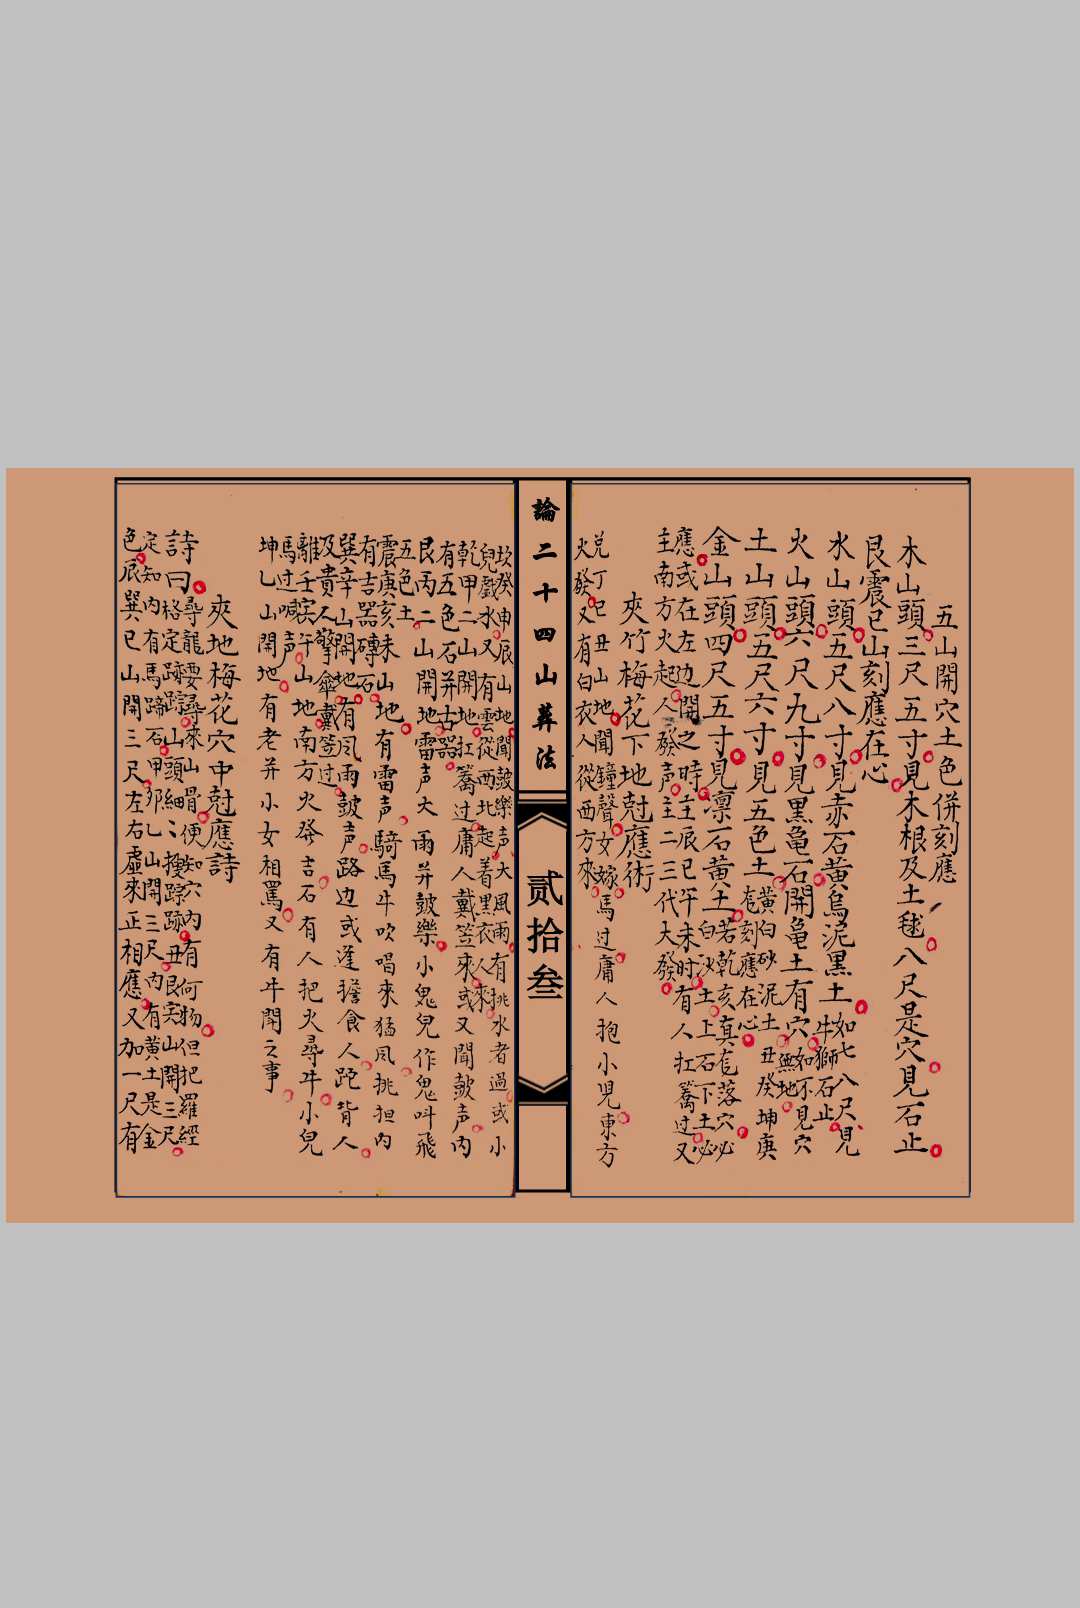 五山開穴土色併刻應
木山頭三尺五寸見木根及土毬八尺是穴見石止
艮震巳山刻應在心
水山頭五尺八寸見赤石黄烏泥黑土如七八尺見
牛獅石止
火山頭六尺九寸見黑亀石開亀土有穴如不見穴
無地
土山頭五尺六寸見五色土黄白砂泥土丑癸坤庚
刻應在心
金山頭四尺五寸見凛石黄土若乾亥真龙落穴必
白沙土上石下土必
應或在左边開之時主辰巳午未时有人扛籌过又
主南方火起人發声主二三代大發
夾竹梅花下地尅應術
兑丁巳丑山地聞鐘聲女嫁馬过庸人抱小児東方
火發又有白衣人從西方來
論二十四山葬法
贰拾叁
坎癸申辰山地聞皷樂声大風雨有挑水者過或小
兒戲水又有雲從西北起着黑衣人來
乾甲二山開地扛籌过庸人戴笠來或又聞皷声内
有五色石并古器
艮丙二山開地雷声大雨并皷樂小鬼兒作鬼叫飛
五色土
震庚亥未山地有雷声騎馬牛吹唱來猛风挑担内
有吉器磚石
巽辛山開地有风雨皷声路边或逢擔食人跎背人
及貴人擎傘戴笠过
離壬寅午山地南方火發吉石有人把火尋牛小兒
馬过喊声
坤乙山開地有老并小女相罵又有牛聞之事
夾地梅花穴中尅應詩
詩曰
尋龍要尋來山骨便知穴内有何物但把羅經
格定踪踪山頭細〻搜踪跡丑艮寅山開三尺
定知内有馬蹄石甲卯乙山開三尺内有黄土是金
色辰巽巳山開三尺左右虛來正相應又加一尺有